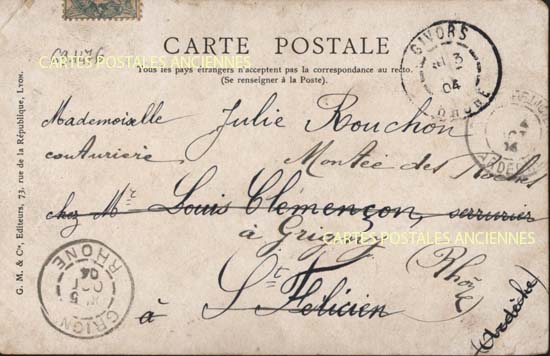 69.1176
CARTES POSTALES ANCIENNES
CARTE POSTALE
Tous les pays étrangers n'acceptent pas la correspondance au recto.
(Se renseigner à la Poste).
GIVORS
3
04
RHONE
G. M. & Cie, Editeurs, 73, rue de la République, Lyon.
Mademoiselle Julie Rouchon
couturière Montée des Roches
chez Mr Louis Clémençon, serrurier
à Grigny
CARTES POSTALES ANCIENNES
(Rhône)
à St Félicien
(Ardèche)
GRIGN
5
OCT
04
RHONE
ARDECHE